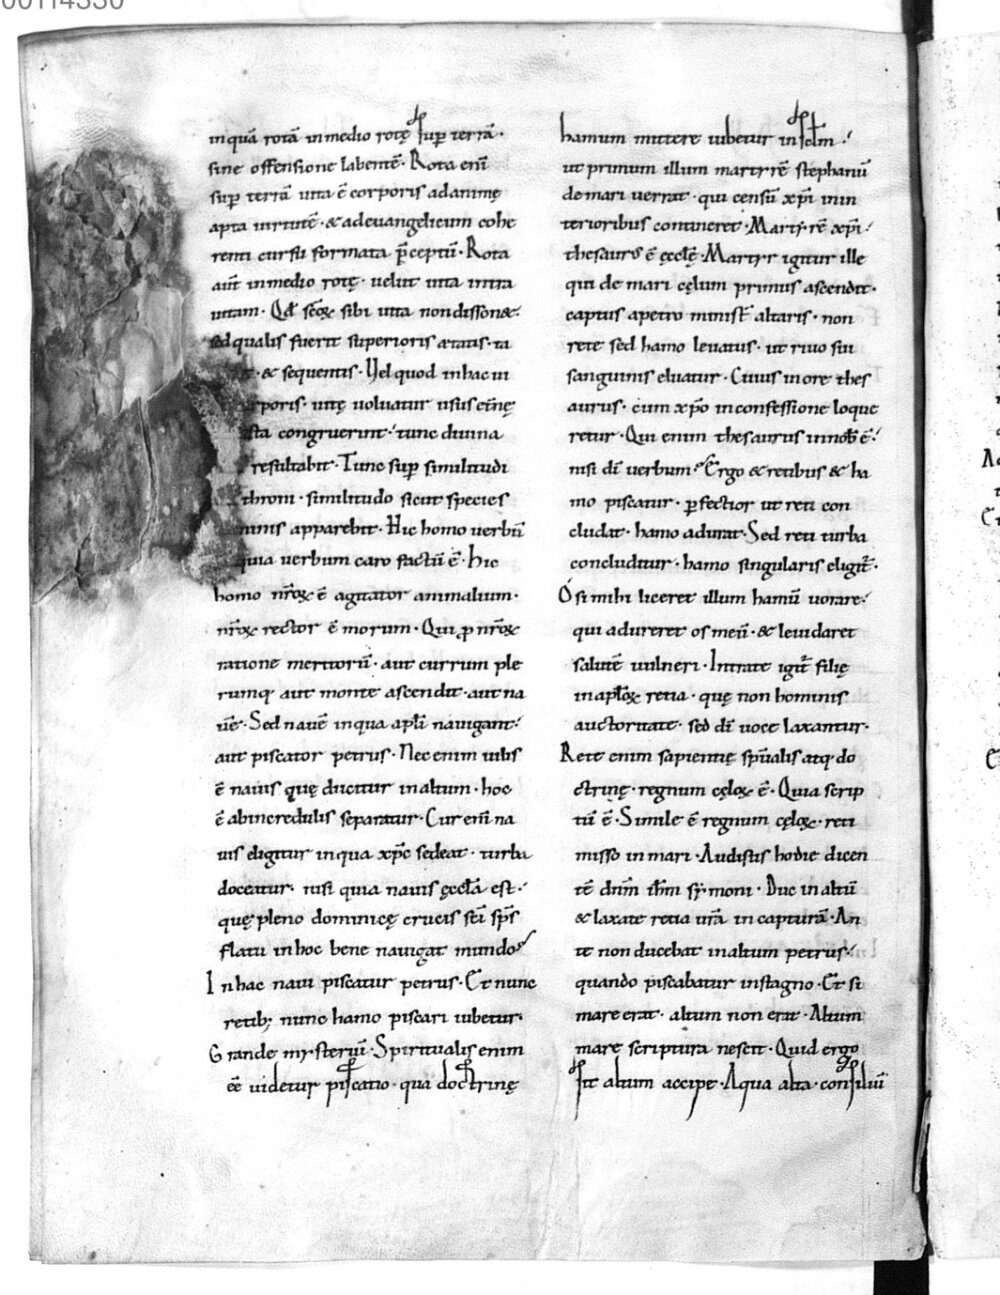 00114330
in quã rotã in medio rotę sup terrã·
sine offensione labentẽ· Rota enĩ
sup terrã uita ẽ corporis ad animę
apta uirtutẽ· & ad euangelicum cohe
renti cursu formata p̃ceptũ· Rota
aut̃ in medio rotę· uelut uita intra
uitam· Qđ scõꝝ sibi uita non disson&·
sed qualis fuerit superioris ætatis· ta
& sequentis· Vel quod in hac ui
rporis· uitę uoluatur usus et̃nę
sta congruerint· tunc diuina
resultabit· Tunc sup similitudi
throni· similitudo sicut species
minis apparebit· Hic homo uerbũ
quia uerbum caro factũ ẽ· hic
homo nr̃oꝝ ẽ agitator animalium·
nr̃oꝝ rector ẽ morum· Qui ꝓ nr̃oꝝ
ratione meritorũ· aut currum ple
rumq· aut monte ascendit· aut na
uẽ· Sed nauẽ in qua apl̃i nauigant·
aut piscator petrus· Nec enim uilis
ẽ nauis quę ducitur in altum· hoc
ẽ ab incredulis separatur· Cur enĩ na
uis eligitur in qua xp̃c sedeat· turba
doceatur· nisi quia nauis ęccl̃a est·
quę pleno dominicę crucis sc̃i sp̃s
flatu in hoc bene nauigat mundo·
In hac naui piscatur petrus· Et nunc
retib; nunc hamo piscari iubetur·
Grande mysteriũ· Spiritualis enim
ẽe uidetur piscatio· qua doctrinę
hamum mittere iubetur in sclm̃·
ut primum illum martyrẽ stephanũ
de mari uerrat· qui censũ xp̃i in in
terioribus contineret· Martyrẽ xp̃i·
thesaurs ẽ ęccl̃ę· Martyr igitur ille
qui de mari cęlum primus ascendit·
captus a petro minist̃ altaris· non
rete sed hamo leuatus· ut riuo sui
sanguinis eluatur· Cuius in ore thes
aurus· cum xp̃o in confessione loque
retur· Qui enim thesaurus in nob̃ ẽ·
nisi dĩ uerbum· Ergo & retibus & ha
mo piscatur· ꝑfectior ut reti con
cludat· hamo adurat· Sed reti turba
concluditur· hamo singularis eligit̃·
O si mihi liceret illum hamũ uorare·
qui adureret os meũ· & leui daret
salutẽ uulneri· Intrate igit̃ filię
in apl̃oꝝ retia· quę non hominis
auctoritate· sed dĩ uoce laxantur·
Rete enim sapientię sp̃ualis atq· do
ctrinę· regnum cęloꝝ ẽ· Quia scrip
tũ ẽ· Simile ẽ regnum cęloꝝ· reti
misso in mari· Audistis hodie dicen
tẽ dnm̃ ihm̃ symoni· Duc in altũ
& laxate retia ur̃a in capturã· An
te non ducebat in altum petrus·
quando piscabatur in stagno· Et si
mare erat· altum non erat· Altum
mare scriptura nescit· Quid ergo
sit altum accipe· Aqua alta· consiliũ